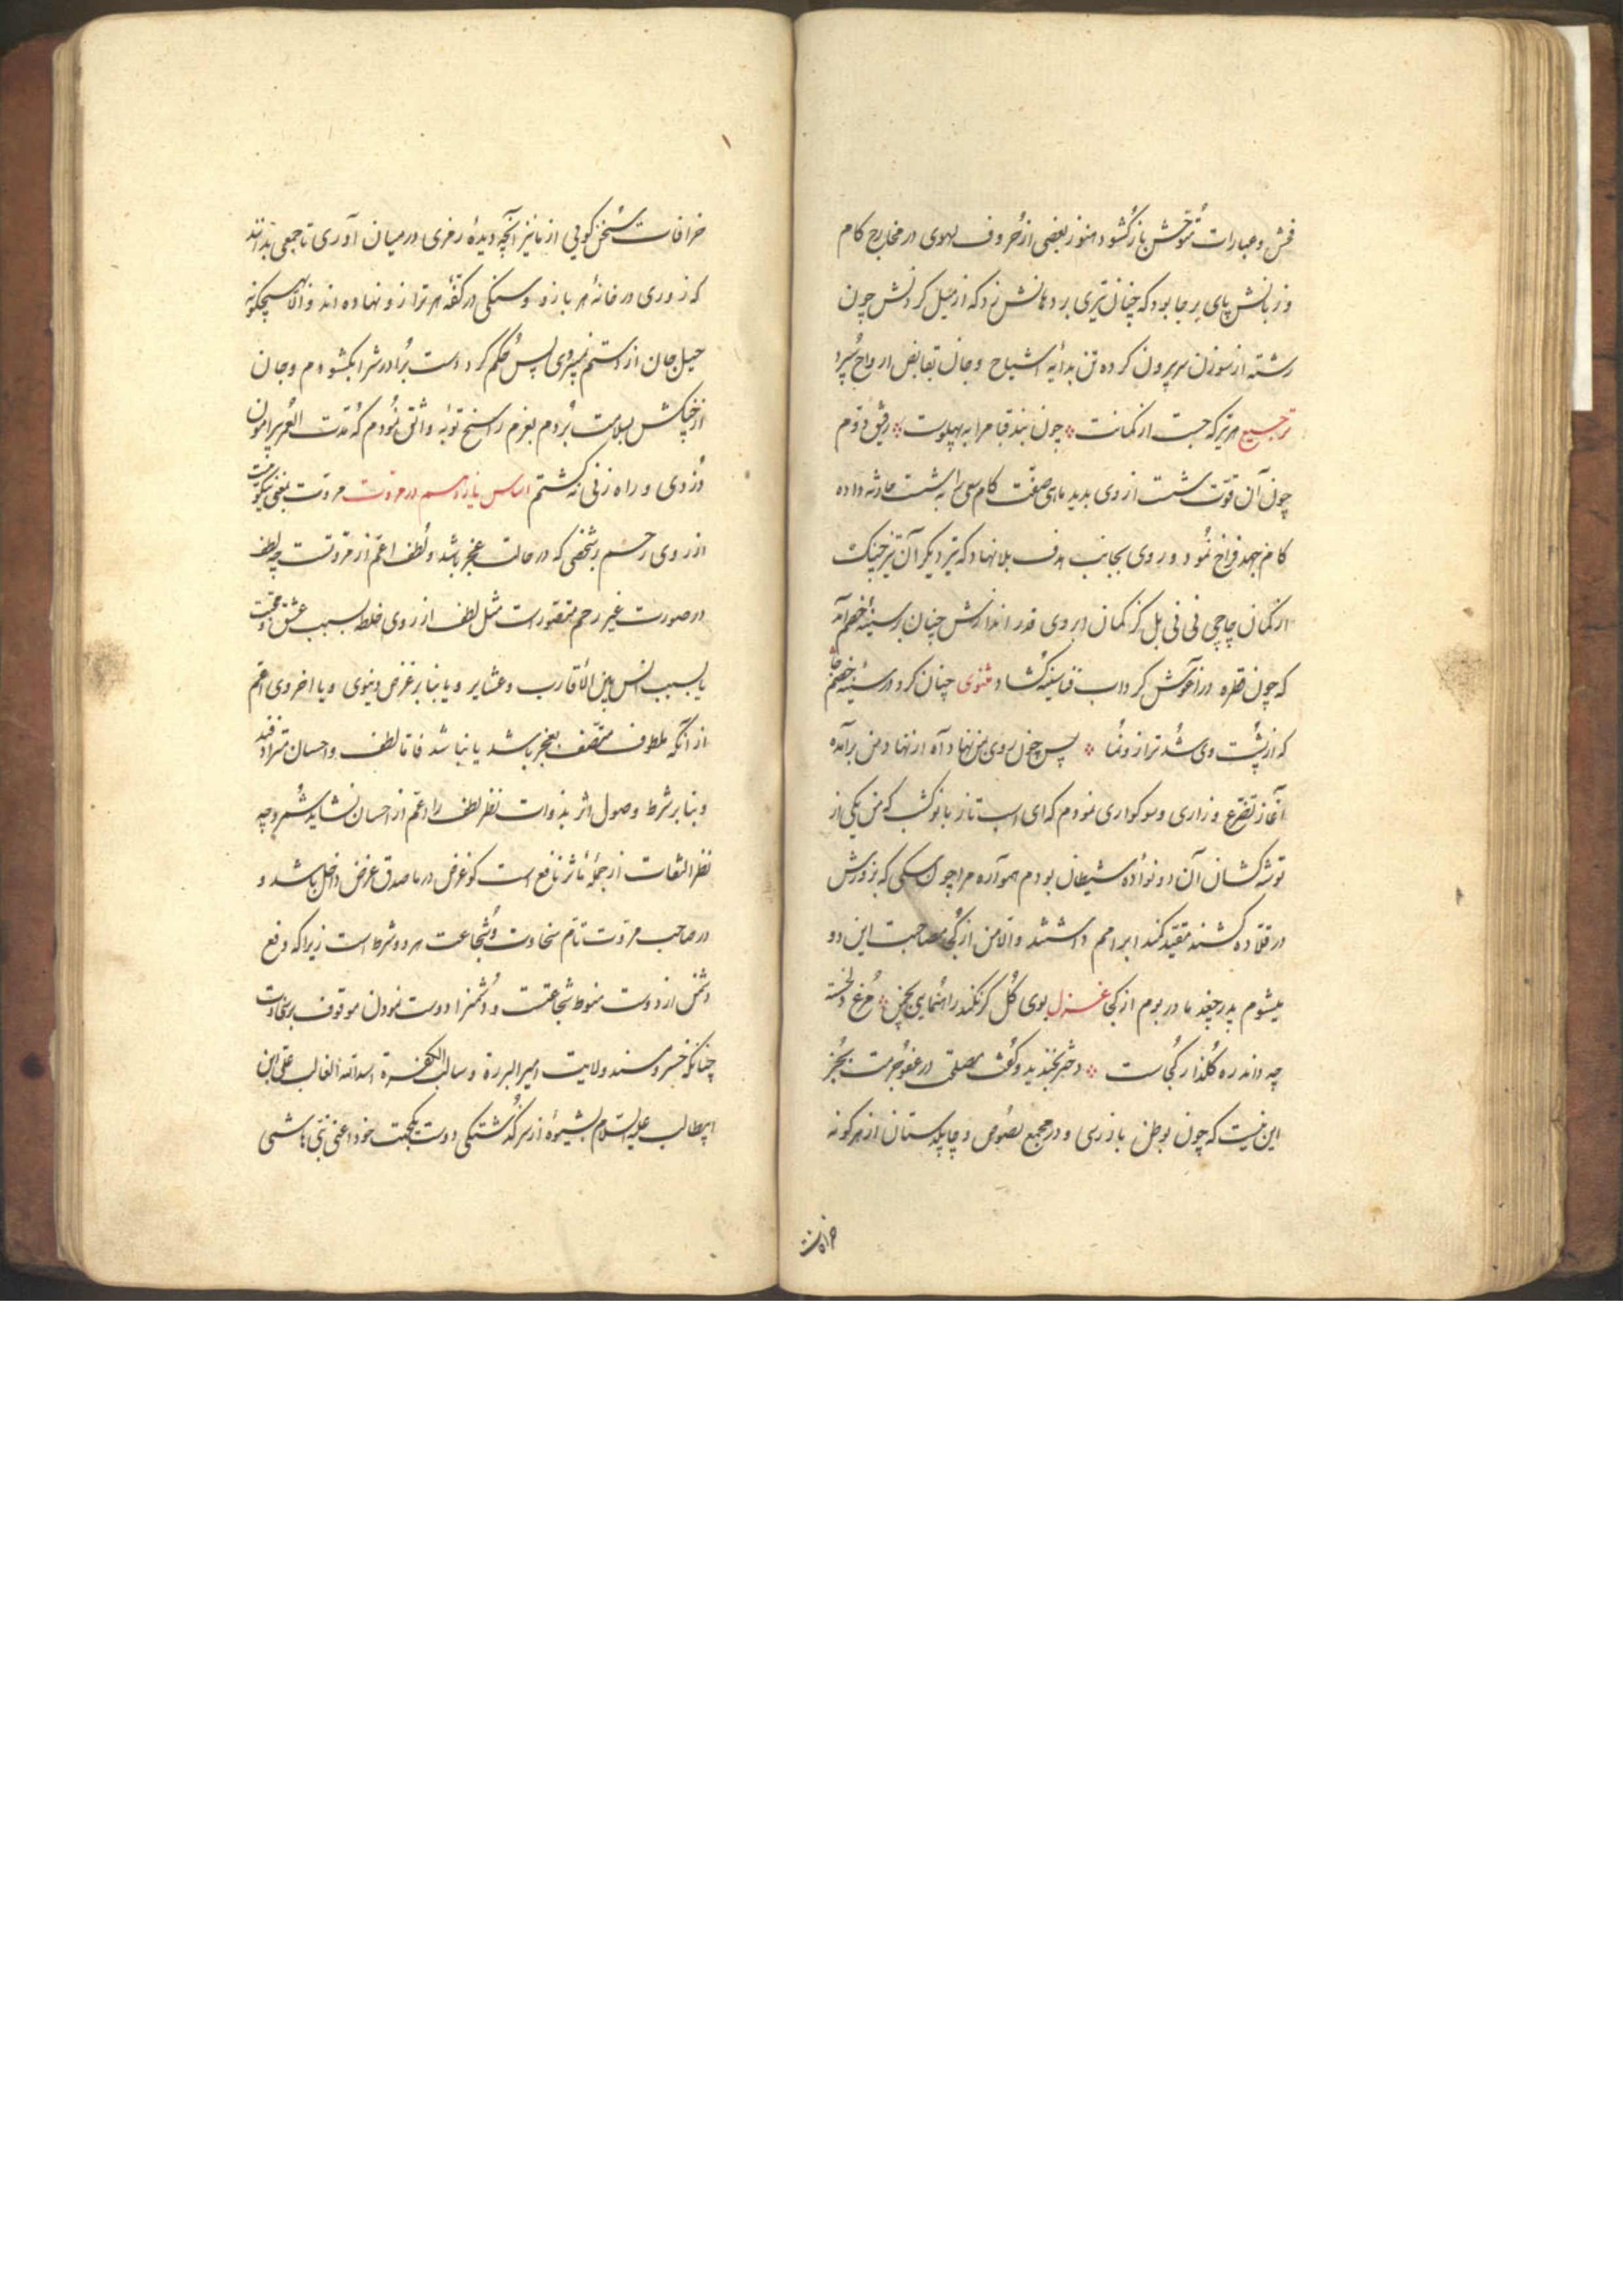 فحش و عبارات متوحّش باز گشود هنوز بعضی از حروف یهوی در مخارج کام
و زبانش پای بر جا بود که چنان تیری بر دهانش زد که از میل کردنش چون
رشته از سوزن سر برون کرده تن بدایهٔ اشباح و جان بقابض ارواح سپرد
ترجیع هر تیر که جست از کمانت چون بند قبا مرا به پهلوست رفیق دوم
چون آن قوت شست از وی بدید کام سعی را به شست حادثه داده
کام جهد فراخ نمود و روی بجانب هدف بلا نهاد که تیر دیگر آن تیز چنگ
از کمان چاچی نی نی بل کز کمان ابروی قدر اندازش چنان بر سینهٔ خصم آمد
که چون قطره در آغوش گرداب فنا سینه گشاد مثنوی چنان کرد در سینهٔ خصم جا
که از پشت وی شد ترازو نما پس چون روی بمن نهاد آه از نهاد من برآمده
آغاز تضرع و زاری و سوکواری نمودم که ای است ناز بانو کشب که من یکی از
توشه کشان آن دو نوادهٔ شیطان بودم همواره مرا چون سگی که بزورش
در قلاده کشند مقید کمند ابرامم داشتند والا من از کجا مصاحبت این دو
میشوم پدر چغد مادر بوم از کجا غزل بوی گل گر نکند راهنمایی بچمن مرغ دلخسته
چه داند ره گلزار کجاست دختر بخندید و گفت مصلحتی در عفو جرمت بجز
این نیست که چون بوطن باز رسی و در مجمع لصوص و چابکدستان از هر گونه
خرافات
خرافات سخن گویی از ما نیز آنچه دیدهٔ رمزی در میان آوری تا جمعی بدانند
که زوری در خانهٔ هر بازو و سنگی در کفهٔ هر ترازو نهاده اند و الا بهیچگونه
حیل جان از دستم نمیبردی پس حکم کرد دست برادرش را بگشودم و جان
از چنگش بسلامت بردم بعزم راسخ توبه واثق نمودم که مدت العمر پیرامون
دزدی و راه زنی نگشتم اساس یازدهم در مروت مروت بمعنی نیکوئیست
از روی رحم بر شخصی که در حالت عجز باشد و لطف اعم از مروتست چه لطف
در صورت غیر رحم متصور است مثل لطف از روی خلط بسبب عشق و محبت
یا بسبب انس بین الاقارب و عشایر و یا بنا بر غرض دنیوی و یا اخروی اعم
از آنکه ملطوف متصف بعجز باشد یا نباشد فاما لطف و احسان مترادفند
و بنا بر شرط وصول اثر بذوات نظر لطف را اعم از احسان نشاید شمرد چه
نظر التفات از جملهٔ تاثر نافع است کو غرض در ما صدق غرض داخل باشد و
در صاحب مروت تام سخاوت و شجاعت هر دو شرط است زیرا که دفع
دشمن از دوست منوط شجاعتست و دشمنرا دوست نمودن موقوف بر سخاوت
چنانکه خسرو مسند ولایت امیر البررة و سالب الکفرة اسد الله الغالب علی ابن
ابیطالب علیه السلام بشیوهٔ از سر گذشتگی دوست یکجهت خود اعنی نبی هاشمی